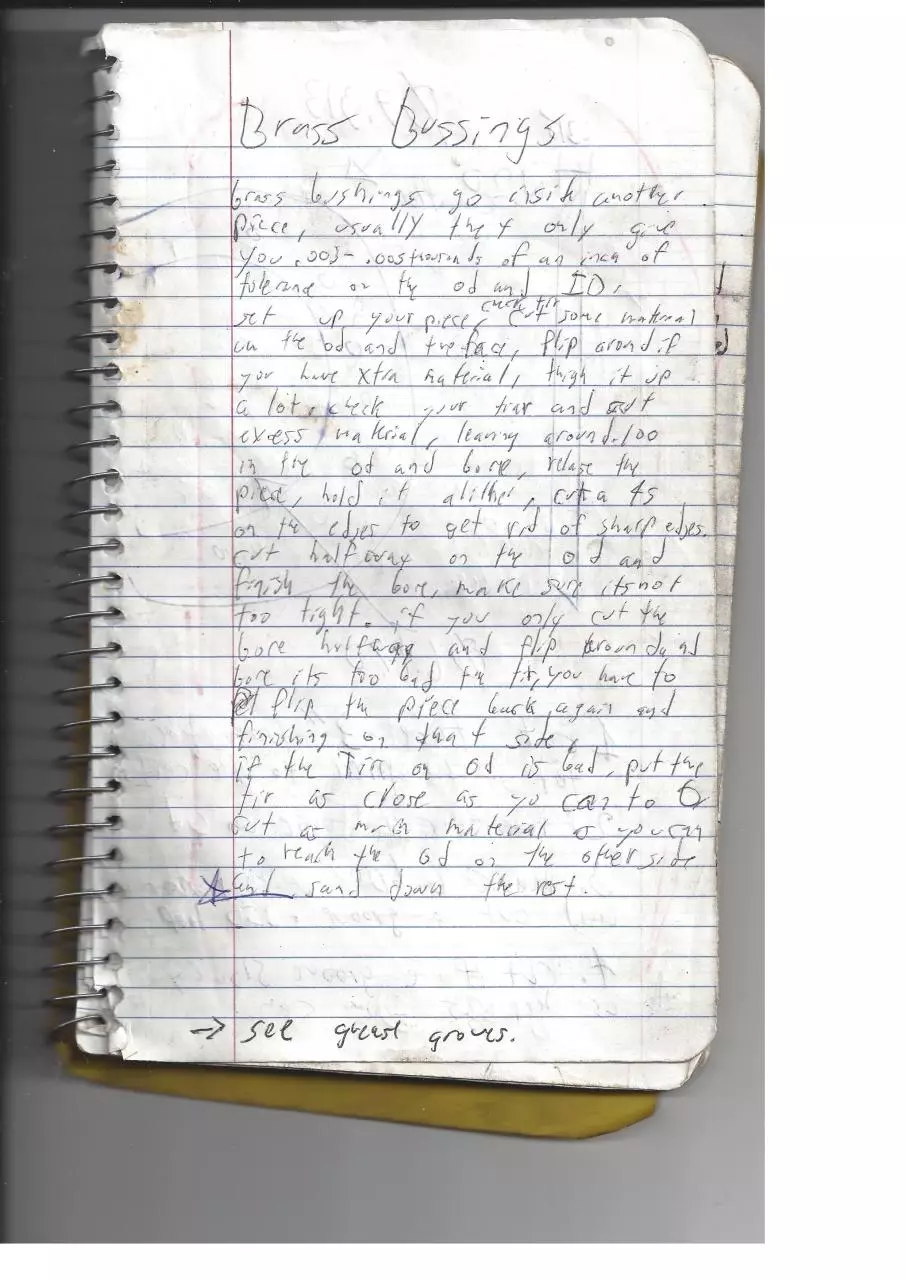 Brass Bussings
brass bushings go inside another
piece, usually they only give
you .003-.005 thousands of an inch of
tolerance on the od and ID.
check tir
set up your piece, cut some material
on the od and the face, flip around if
you have xtra material, thigh it up
a lot, check your tirar and cut
exess material, leaving around .100
in the od and bore, relase the
piece, hold it alither, cut a 45
on the edjes to get rid of sharp edjes.
cut halfway on the od and
finish the bore, make sure its not
too tight. if you only cut the
bore halfway and flip around and
bore its too bad the tir, you have to
flip the piece back again and
finishing on that side,
if the Tir on od is bad, put the
tir as close as yo can to 0
cut as much material as you can
to reach the od on the other side
and sand down the rest.
→ see grease groves.